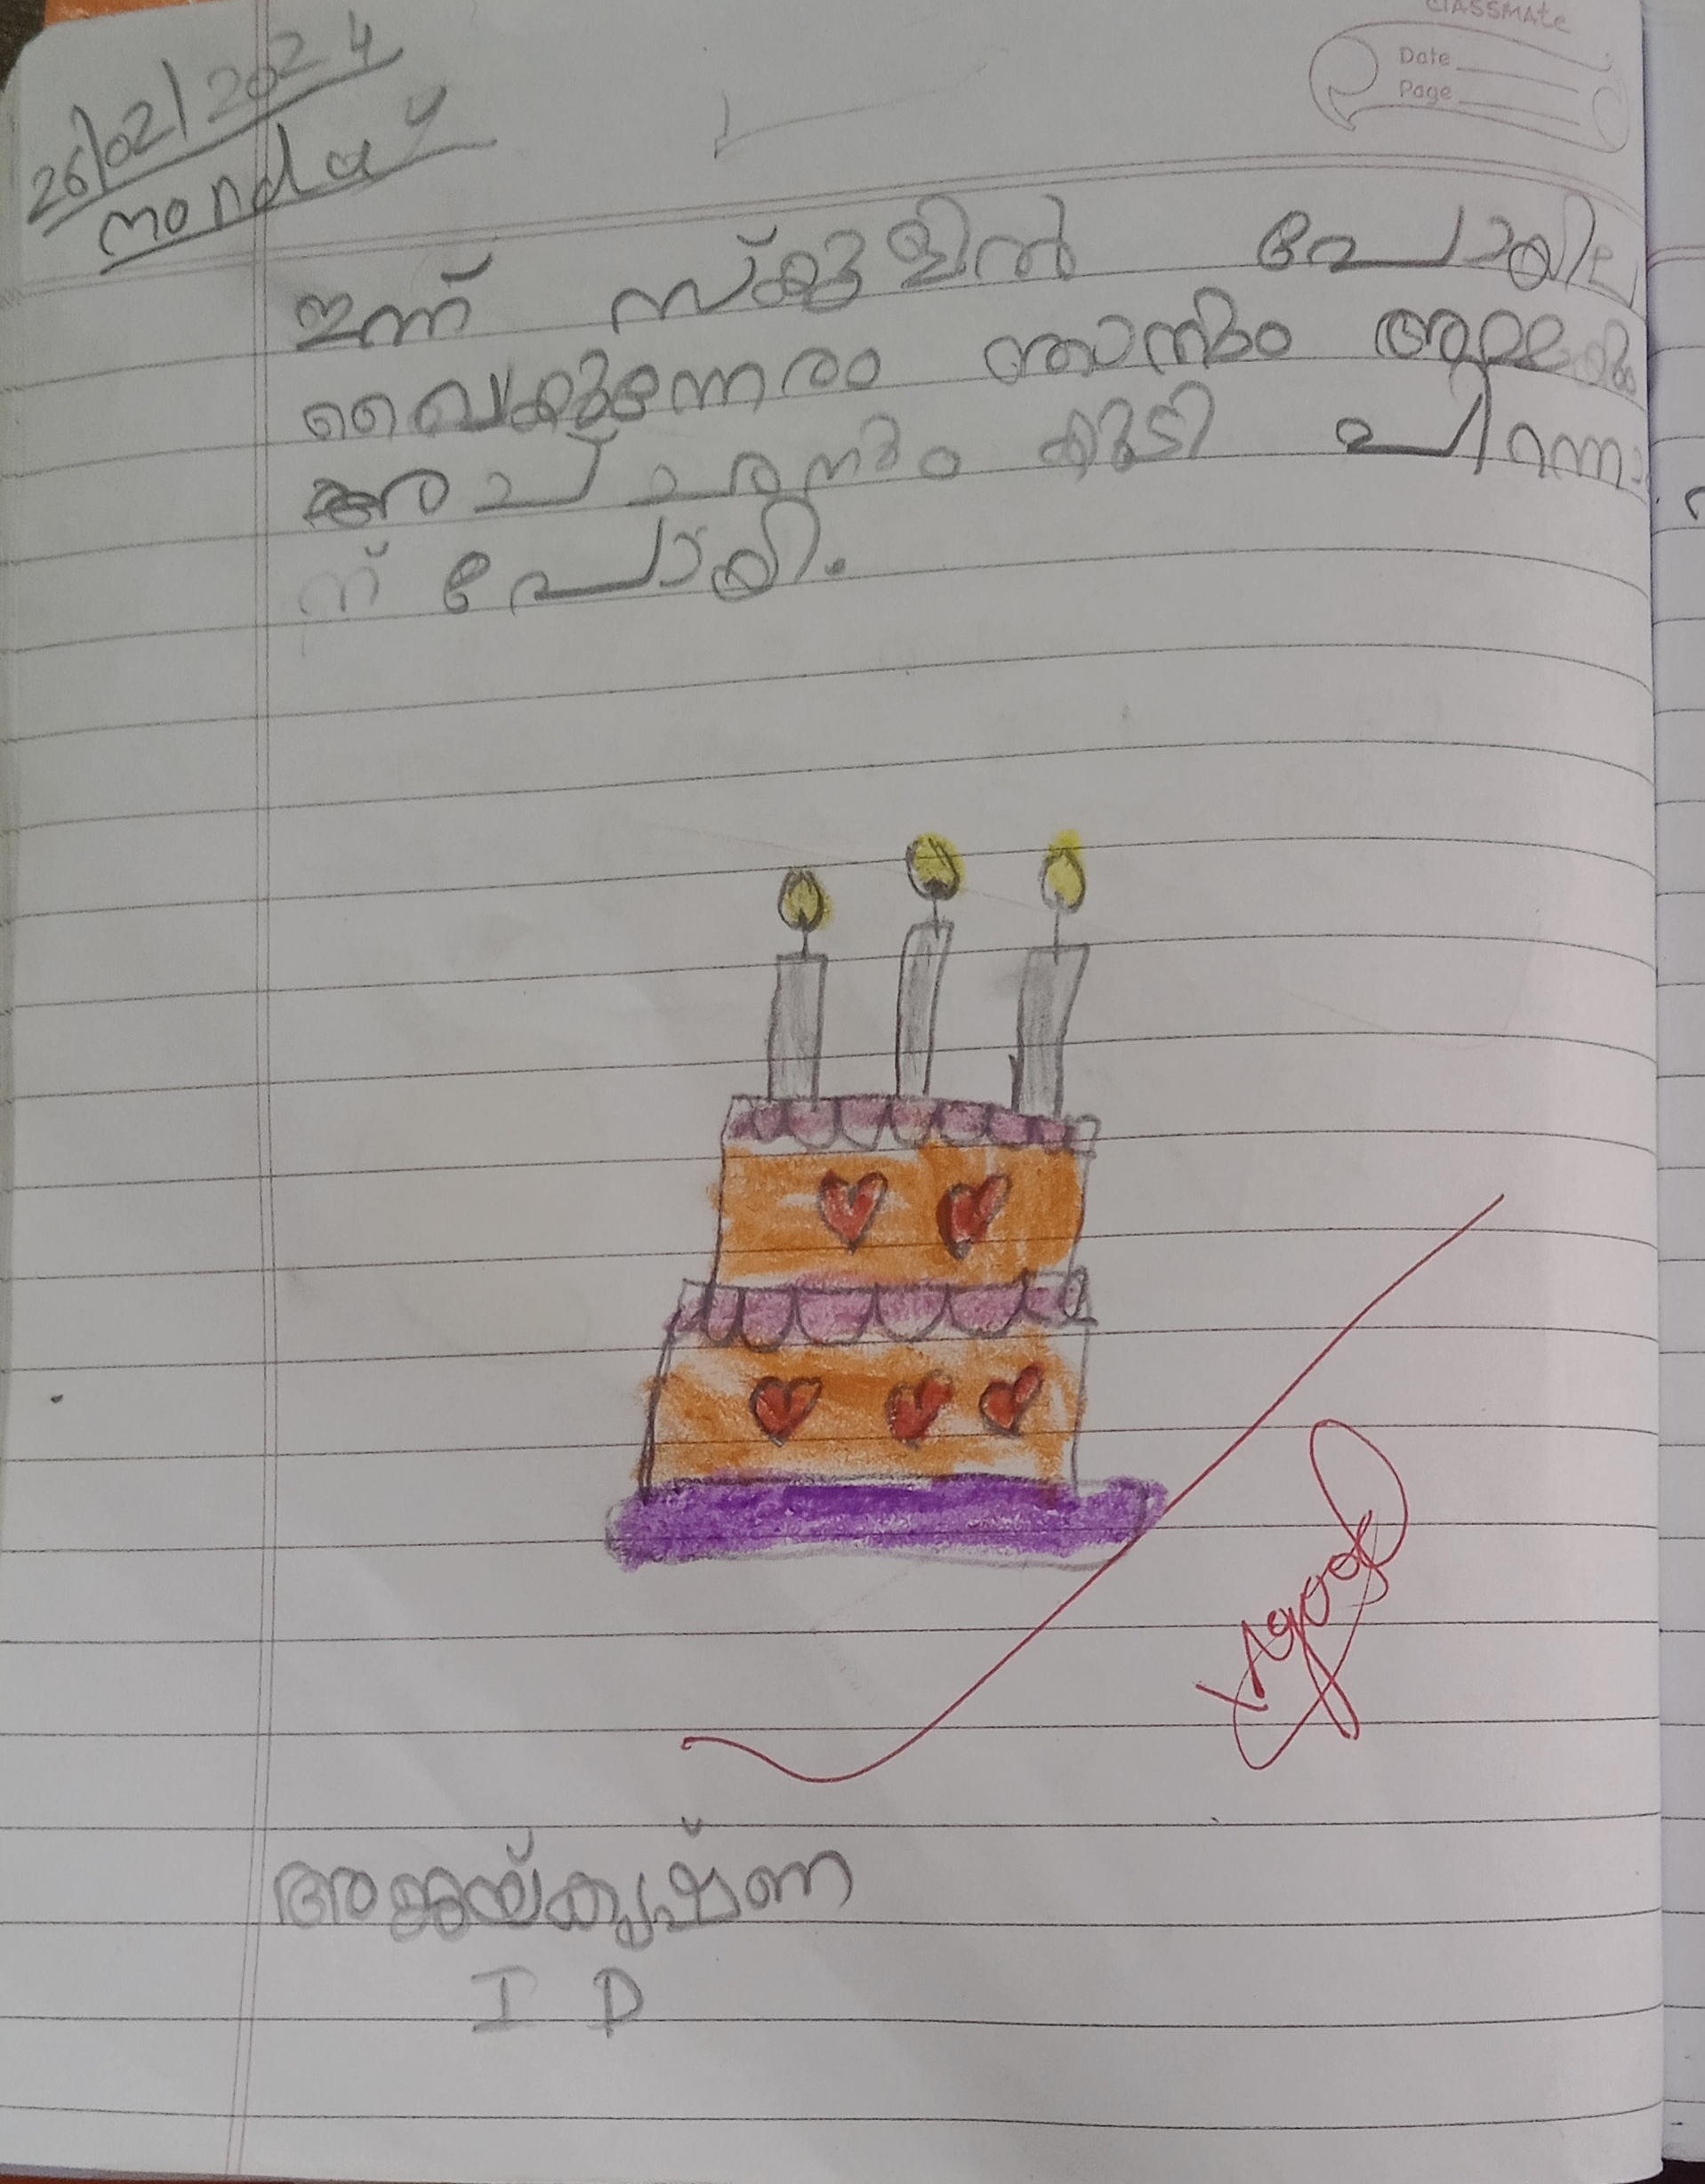 classmate
Date
Page
26/02/2024
monday
ഇന്ന് സ്കൂളിൽ പോയില
വൈകുന്നേരം ഞാനും
അപ്പനും കൂടി പിറന്നാ
ന് പോയി.
good
അജയ്കൃഷ്ണ
I D